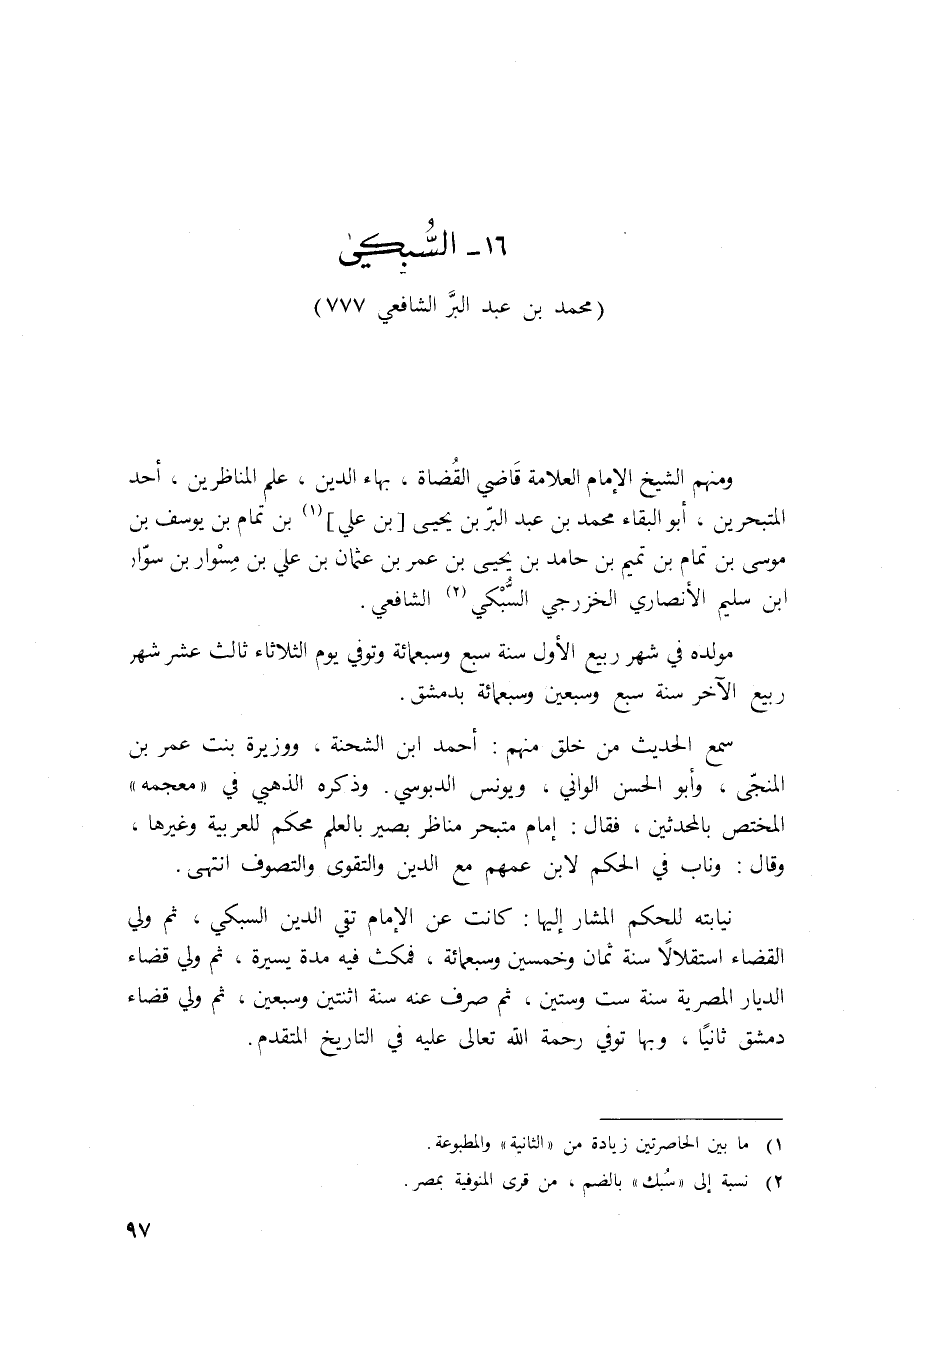 ١٦ - السُّبكي
(محمد بن عبد البرَّ الشافعي ٧٧٧)
ومنهم الشيخ الإمام العلامة قَاضي القُضاة ، بهاء الدين ، علم المناظرين ، أحد
المتبحرين ، أبو البقاء محمد بن عبد البرّ بن يحيى [بن علي](١) بن تمام بن يوسف بن
موسى بن تمام بن تميم بن حامد بن يحيى بن عمر بن عثمان بن علي بن مِسْوار بن سوّار
ابن سليم الأنصاري الخزرجي السُّبْكي(٢) الشافعي .
مولده في شهر ربيع الأول سنة سبع وسبعمائة وتوفي يوم الثلاثاء ثالث عشر شهر
ربيع الآخر سنة سبع وسبعين وسبعمائة بدمشق .
سمع الحديث من خلق منهم : أحمد ابن الشحنة ، ووزيرة بنت عمر بن
المنجّى ، وأبو الحسن الواني ، ويونس الدبوسي . وذكره الذهبي في «معجمه»
المختص بالمحدثين ، فقال : إمام متبحر مناظر بصير بالعلم محكم للعربية وغيرها ،
وقال : وناب في الحكم لابن عمهم مع الدين والتقوى والتصوف انتهى .
نيابته للحكم المشار إليها : كانت عن الإمام تقي الدين السبكي ، ثم ولي
القضاء استقلالًا سنة ثمان وخمسين وسبعمائة ، فمكث فيه مدة يسيرة ، ثم ولي قضاء
الديار المصرية سنة ست وستين ، ثم صرف عنه سنة اثنتين وسبعين ، ثم ولي قضاء
دمشق ثانيًا ، وبها توفي رحمة الله تعالى عليه في التاريخ المتقدم .
١) ما بين الحاصرتين زيادة من «الثانية» والمطبوعة .
٢) نسبة إلى «سُبك» بالضم ، من قرى المنوفية بمصر .
٩٧